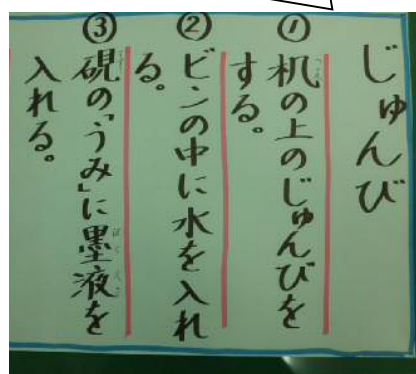 じゅんび
①机の上のじゅんびを
する。
②ビンの中に水を入れ
る。
③硯の「うみ」に墨液を
入れる。